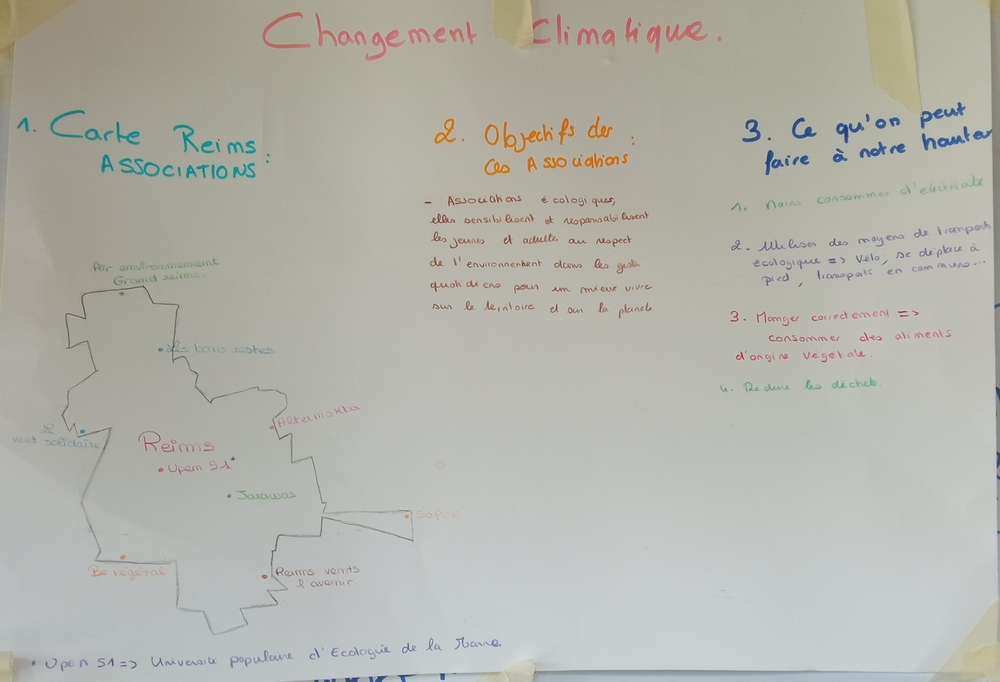 Changement Climatique.
1. Carte Reims
ASSOCIATIONS :
Air environnement
Grand reims.
Les bons restes
Alternatiba
vert solidaire
Reims
Upem 51*
Jarawas
Be végétal
Reims vents
l'avenir
* Upem 51 => Université populaire d'Ecologie de la Marne
2. Objectifs der :
ces Associations
- Associations écologiques,
elles sensibilisent et responsabilisent
les jeunes et adulte au respect
de l'environnement dans les geste
quotidiens pour un mieux vivre
sur le territoire et sur la planète
3. Ce qu'on peut
faire à notre hauteur
1. Moins consommer d'électricité
2. Utiliser des moyens de transport
écologique => Vélo, se déplacé à
pied, transports en commun...
3. Manger correctement =>
consommer des aliments
d'origine végétale.
4. Réduire les déchets.